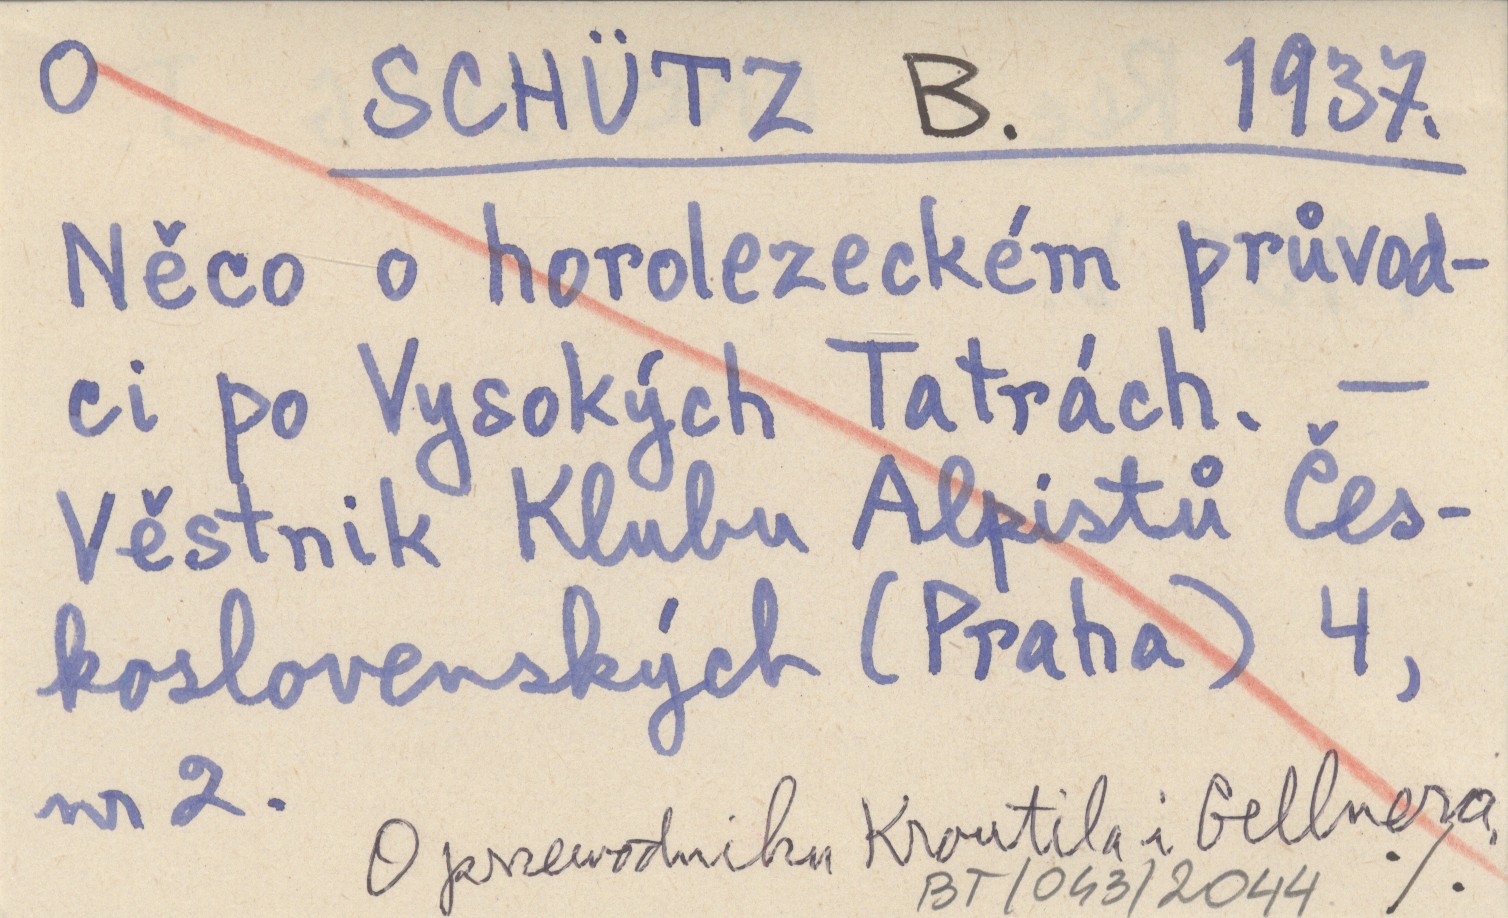 O SCHÜTZ B. 1937.
Něco o horolezeckém průvod-
ci po Vysokých Tatrách. —
Věstnik Klubu Alpistů Čes-
koslovenských (Praha) 4,
nr 2.
O przewodniku Kroutila i Gellnera.
BT/043/2044